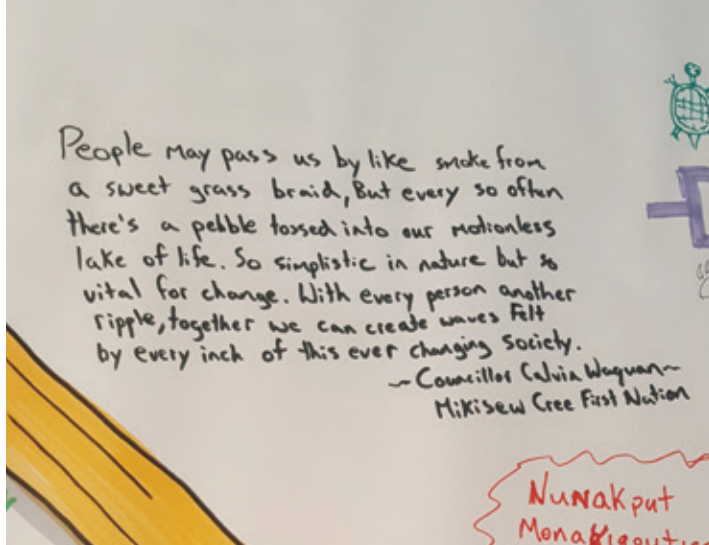 People may pass us by like smoke from
a sweet grass braid, But every so often
there's a pebble tossed into our motionless
lake of life. So simplistic in nature but so
vital for change. With every person another
ripple, together we can create waves Felt
by every inch of this ever changing society.
~ Councillor Calvin Waquan ~
Mikisew Cree First Nation
Nunakput